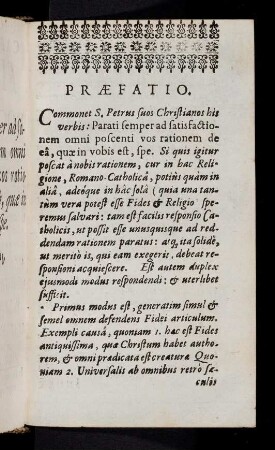 PRÆFATIO.
Commonet S. Petrus suos Christianos his
verbis: Parati semper ad satisfactio-
nem omni poscenti vos rationem de
eâ, quæ in vobis est, spe. Si quis igitur
poscat à nobis rationem, cur in hac Reli-
gione, Romano-Catholicâ, potiùs quàm in
aliâ, adeóque in hâc solâ (quia una tan-
tùm vera potest esse Fides & Religio) spe-
remus salvari: tam est facilis responsio Ca-
tholicis, ut possit esse unusquisque ad red-
dendam rationem paratus: atq, ita solidè,
ut meritò is, qui eam exegerit, debeat re-
sponsioni acquiescere. Est autem duplex
ejusmodi modus respondendi: & uterlibet
sufficit.
Primus modus est, generatim simul &
semel omnem defendens Fidei articulum.
Exempli causâ, quoniam 1. hæc est Fides
antiquissima, quæ Christum habet autho-
rem, & omni prædicata est creaturæ Quo-
niam 2. Universalis ab omnibus retrò sæ-
culis